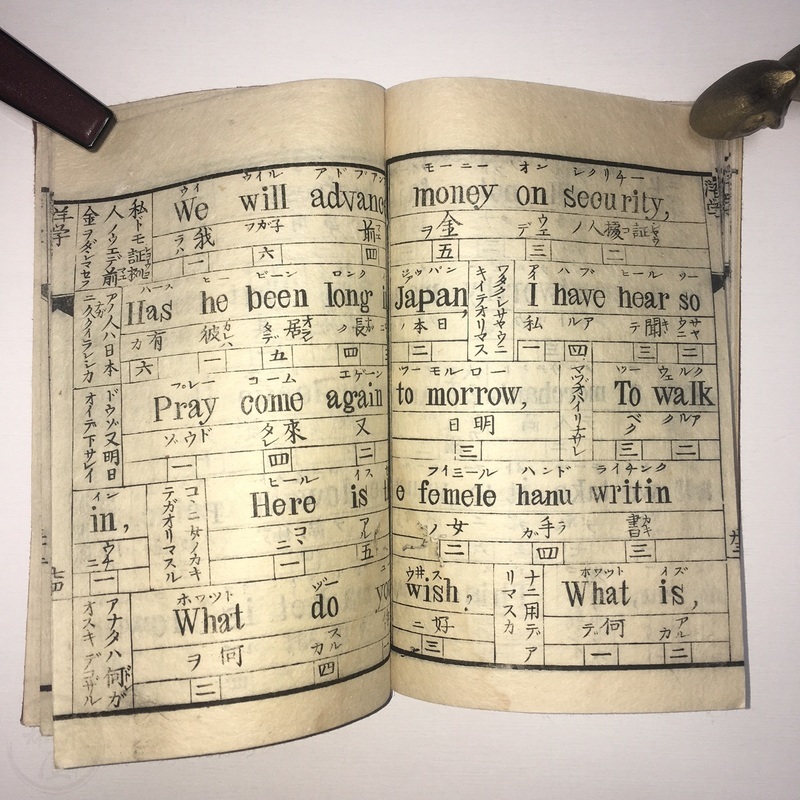 ウイ ウイル アドブアン
We will advanc
我ラハ
一 六 四
私ドモ証拠人ノウエデ前金ヲダシマセフ
モーニー オン シクリチー
money on security,
金ヲ
五 三 二
洋学
ハース ヒー ビーン ロング
Has he been long i
有カ 彼カレハ 居オマタデ 長ク
六 一 五 四
アノ人ハ日本ニ
ジヤウパン
Japan,
日本ノ
二
ワタクシサヤウニキイテオリマス
アイ ハブ ヒール ソー
I have hear so
私 アル 聞キテ サヤウニ
一 四 三 二
プレー コーム エゲーン
Pray come again
ドウゾ 來タレ 又
一 四 二
ドウゾ又明日オイデ下サレイ
ツー モルロー
to morrow,
明日
三
ツー ウェルク
To walk
ベク アルク
三 二
イン
in,
ウチニ
一
ヒール イス
Here is
コヽニ アル
一 五
フイミール ハンド ライチング
e femele hanu writin
女ノ 手ガラ 書カキ
二 四 三
ホワツト ヅー
What do yo
何ヲ スルカ
二 四
アナタハ何ガオスキデゴザル
ウ井ス
wish,
好ニ
三
ナニ用デアリマスカ
ホワツト イズ
What is,
何デ アル
一 二